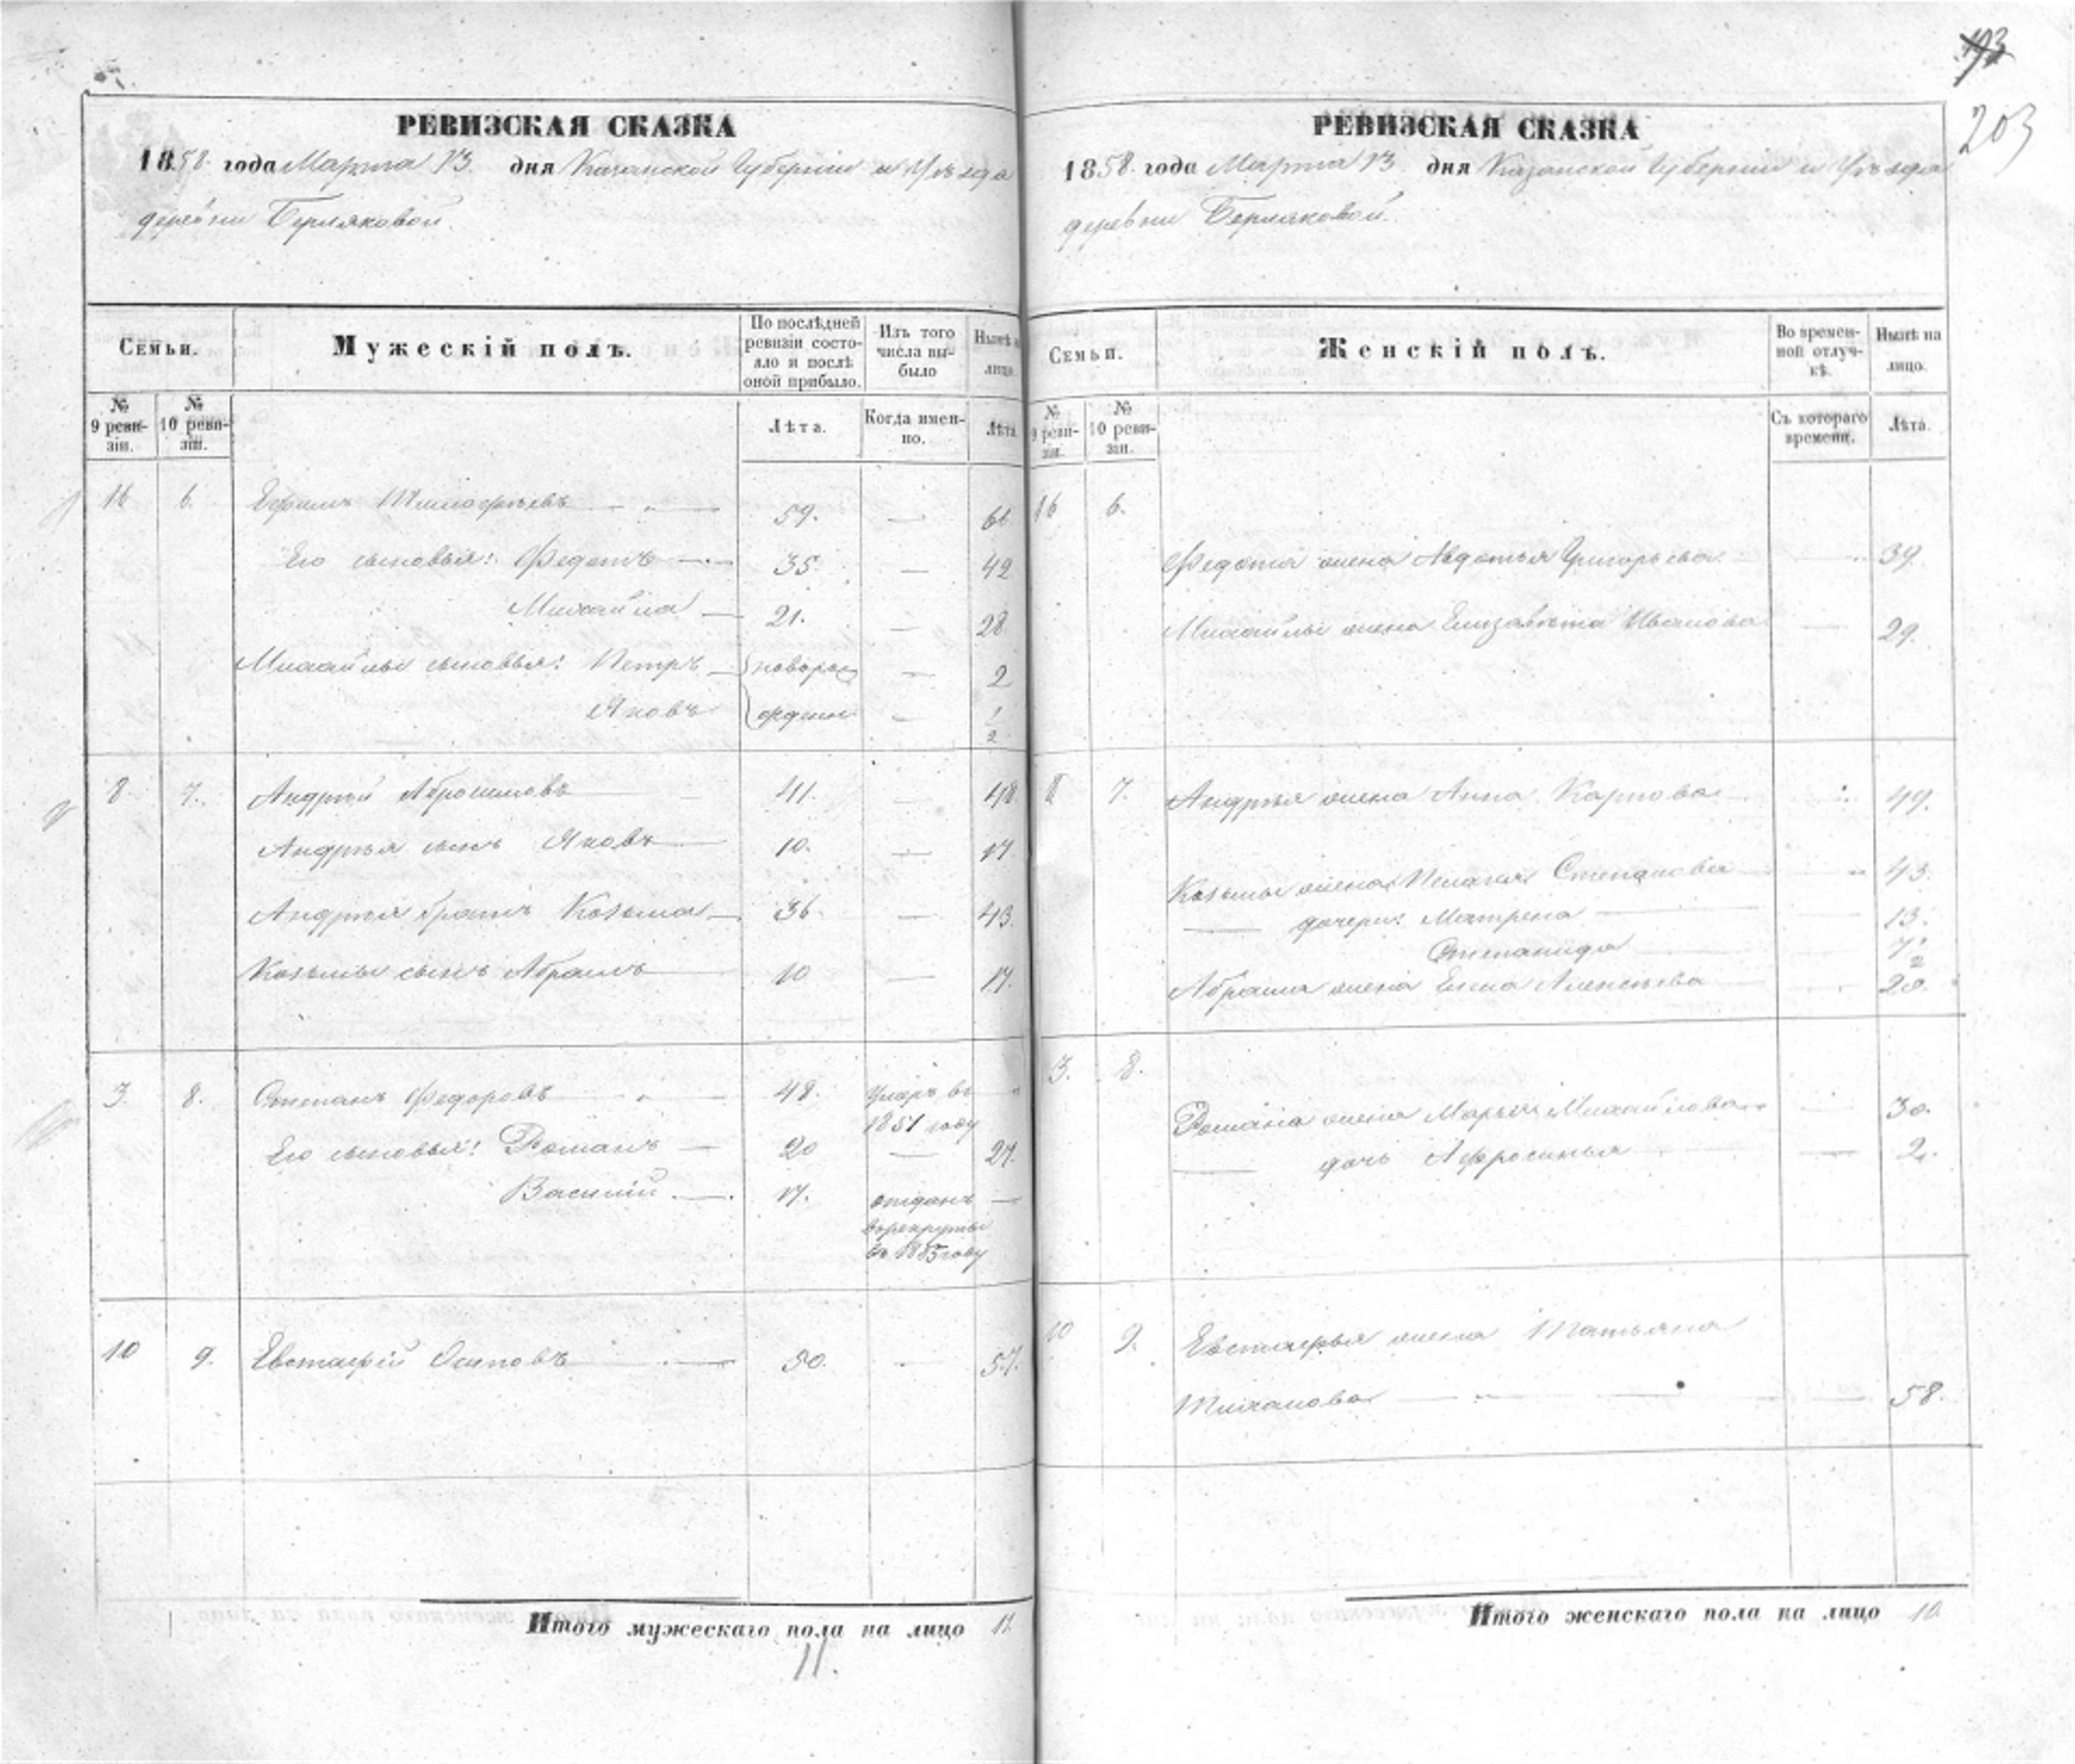 193
203
РЕВИЗСКАЯ СКАЗКА
1858 года Марта 13 дня Казанской Губернии и Уѣзда
деревни Берляковой.
Семьи.
Мужескій полъ.
По послѣдней ревизіи состояло и послѣ оной прибыло.
Изъ того числа выбыло
Нынѣ на лицо.
№ 9 ревизіи.
№ 10 ревизіи.
Лѣта.
Когда именно.
Лѣта.
16 6. Ефимъ 59. — 61
Его сыновья: Федотъ — 35. — 42
Михайла — 21. — 28
Михайлы сыновья: Петръ — новорож — 2
Яковъ денн — 1/2
8 7. Андрей Абросимовъ 41. — 48
Андрея сынъ Яковъ 10. — 17
Андрея братъ Козьма — 36. — 43.
Козьмы сынъ Абрамъ 10 — 17.
3. 8. Степанъ Федоровъ 48. умеръ въ 1851 году
Его сыновья: Романъ — 20 — 27.
Василій — 17. отданъ в рекруты въ 1855 году —
10 9. Евстафій Осиповъ — 50. - 57.
Итого мужескаго пола на лицо 11.
11.
РЕВИЗСКАЯ СКАЗКА
1858 года Марта 13 дня Казанской Губерніи и Уѣзда
деревни Берляковой.
Семьи.
Женскій полъ.
Во временной отлучкѣ.
Нынѣ на лицо.
№ 9 ревизіи.
№ 10 ревизіи.
Съ котораго времени.
Лѣта.
16 6.
Федота жена Авдотья Григорьева — 39.
Михайлы жена Елизавета Иванова — 29.
8 7. Андрея жена Анна Карпова — 49.
Козьмы жена Пелагея Степанова — 43.
— дочери: Матрена — 13.
Степанида — 7
Абрама жена Елена Алексѣева 20.
3. 8.
Романа жена Марья Михайлова — 30.
— дочь Афросинья — 2.
10 9. Евстафья жена Татьяна
Тихонова — 58.
Итого женскаго пола на лицо 10